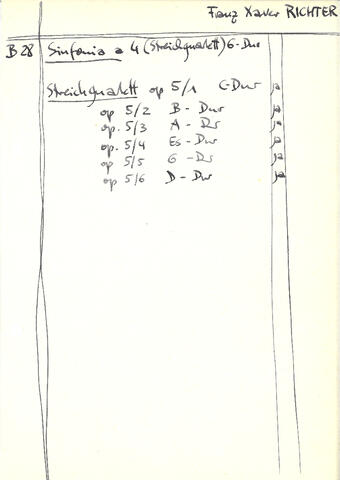 Franz Xaver RICHTER
B 28 Sinfonia a 4 (Streichquartett) G-Dur
Streichquartett op 5/1 C-Dur ja
op 5/2 B - Dur ja
op. 5/3 A - Dur ja
op. 5/4 Es - Dur ja
op 5/5 G - Dur ja
op 5/6 D - Dur ja